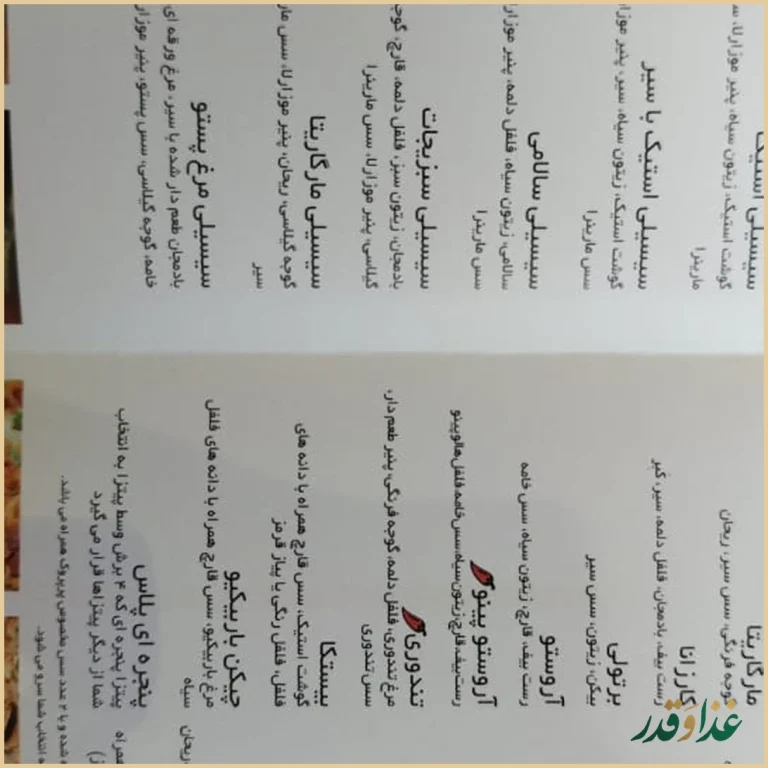 مارگاریتا
گوجه فرنگی، سس سیر، ریحان
کارزانا
رست بیف، بادمجان، فلفل دلمه، سیر، کبر
برتولی
بیکن، زیتون، سس سیر
آروستو
رست بیف، قارچ، زیتون سیاه، سس خامه
آروستو پینو
رست بیف، قارچ، زیتون سیاه، سس خامه، فلفل هالوپینو
تندوری
مرغ تندوری، فلفل دلمه، گوجه فرنگی، پنیر طعم دار،
سس تندوری
بیستکا
گوشت استیک، سس قارچ همراه با دانه های
فلفل، فلفل رنگی یا پیاز قرمز
چیکن باربیکیو
مرغ باربیکیو، سس قارچ همراه با دانه های فلفل
سیاه
پنجره ای پلاس
پیتزا پنجره ای که ۴ برش وسط پیتزا به انتخاب
شما از دیگر پیتزاها قرار می گیرد
شده و با ۲ عدد سس مخصوص پریروک همراه می باشد.
به انتخاب شما سرو می شود.
ریحان
همراه
سیسیلی استیک
گوشت استیک، زیتون سیاه، پنیر موزارلا، سس
مارینرا
سیسیلی استیک با سیر
گوشت استیک، زیتون سیاه، سیر، پنیر موزارلا
سس مارینرا
سیسیلی سالامی
سالامی، زیتون سیاه، فلفل دلمه، پنیر موزارلا
سس مارینرا
سیسیلی سبزیجات
بادمجان، زیتون سبز، فلفل دلمه، قارچ، گوجه
گیلاسی، پنیر موزارلا، سس مارینرا
سیسیلی مارگاریتا
گوجه گیلاسی، ریحان، پنیر موزارلا، سس
سیر
سیسیلی مرغ پستو
بادمجان طعم دار شده با سیر، مرغ ورقه ای
خامه، گوجه گیلاسی، سس پستو، پنیر موزارلا
غذا و قدر